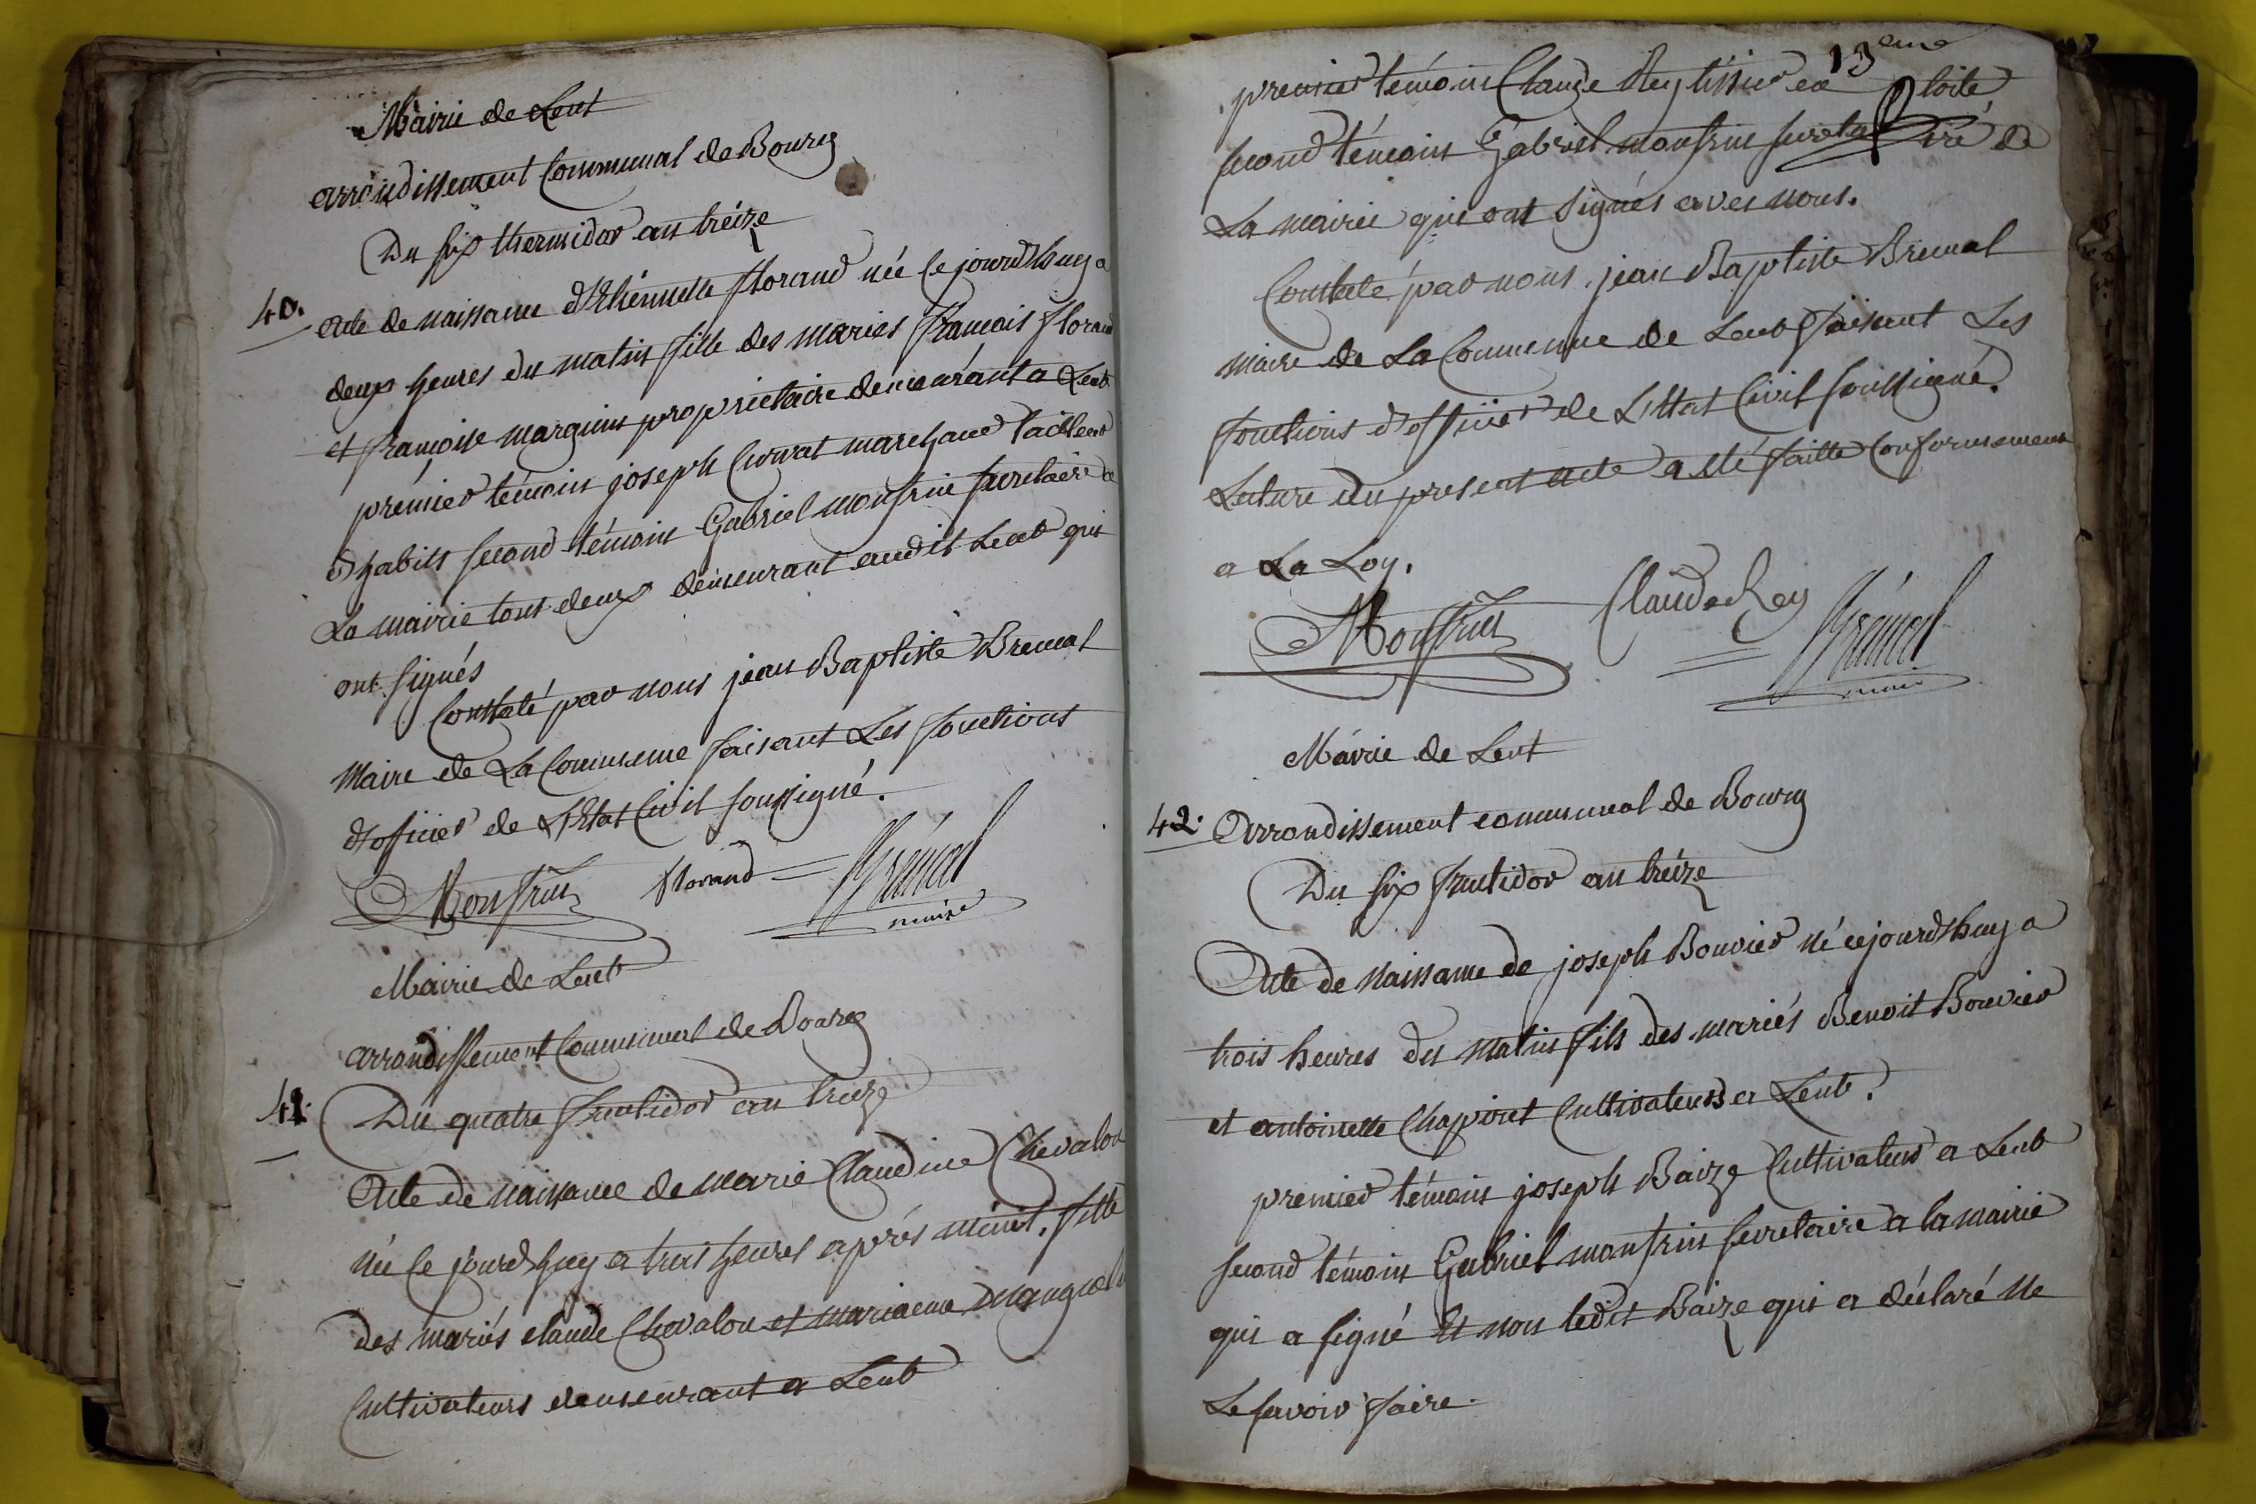 Mairie de Lent
arrondissement Communal de Bourg
Du six thermidor an treize
40. Acte de naissance d'Ethiennette florand née ce jourdhuy a
deux heures du matin fille des mariés francois florand
et françoise marguin propriétaire demeurant a Lent
prémier témoin joseph marchand tailleur
d'habits second témoin Gabriel monfrin secretaire a
La mairie tous deux demeurant audit Lent qui
ont signés
Constaté par nous jean Baptiste Brenal
Maire de La Commune faisant Les fonctions
d'officier de L'Etat Civil soussigné.
Monfrin florand Brénal
maire
Mairie de Lent
arrondissement Communal de Bourg
41. Du quatre fructidor an treize
Acte de naissance de marie Claudine Chevalon
née ce jourdhuy a trois heures après minuit, fille
des mariés claude Chevalon et marianne
Cultivateurs demeurant a Lent
13eme
premier témoin Claude Rey
second témoin Gabriel monfrin de
La mairie qui ont signés avec nous.
Constaté par nous jean Baptiste Brenal
maire de La Commune de Lent faisant Les
fonctions d'officier de L'Etat Civil soussigné.
Lecture du present acte a été faitte Conformement
a La Loy.
Monfrin Claude Rey Brénal
maire
Mairie de Lent
42. Arrondissement communal de Bourg
Du six fructidor an treize
Acte de naissance de joseph Bouvier né cejourdhuy a
trois heures du matin fils des mariés Benoit Bouvier
et antoinette Chapiret Cultivateurs a Lent.
premier témoin joseph Baize Cultivateur a Lent
second témoin Gabriel monfrin secretaire a la mairie
qui a signé et non ledit Baize qui a déclaré ne
Le savoir faire.